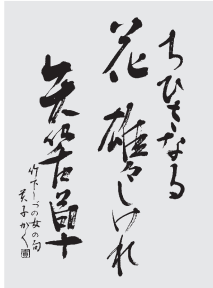 ちひさなる
花雄々しけれ
矢筈草
竹下しづの女の句
かく